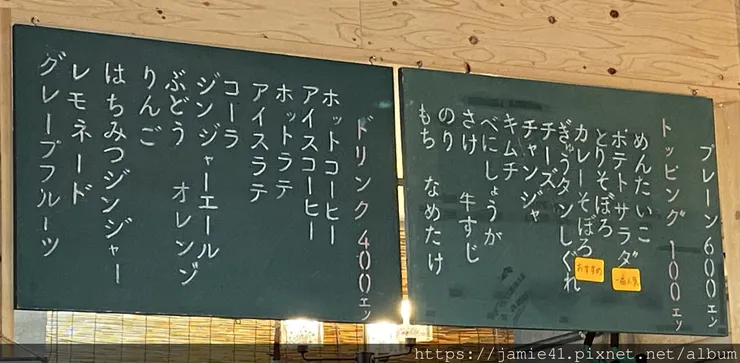 プレーン 600エン
トッピング 100エン
めんたいこ
ポテトサラダ
一番人気
とりそぼろ
カレーそぼろ
おすすめ
ぎゅうタンしぐれ
チーズ
チャンジャ
キムチ
べにしょうが
さけ 牛すじ
のり
もち なめたけ
ドリンク 400エン
ホットコーヒー
アイスコーヒー
ホットラテ
アイスラテ
コーラ
ジンジャーエール
ぶどう オレンジ
りんご
はちみつジンジャー
レモネード
グレープフルーツ
https://jamie41.pixnet.net/album